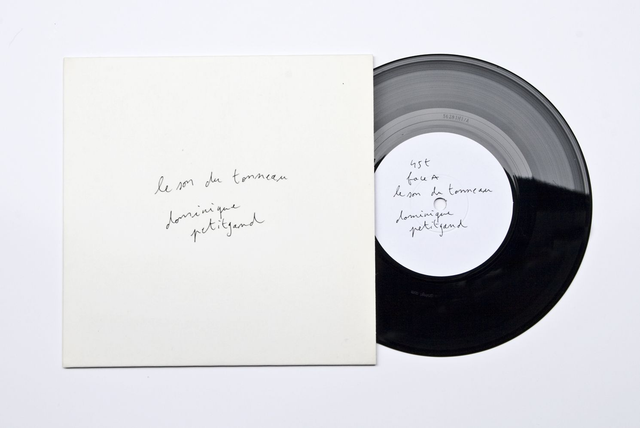 le son du tonneau
dominique
petitgand
45t
face A
le son du tonneau
dominique
petitgand